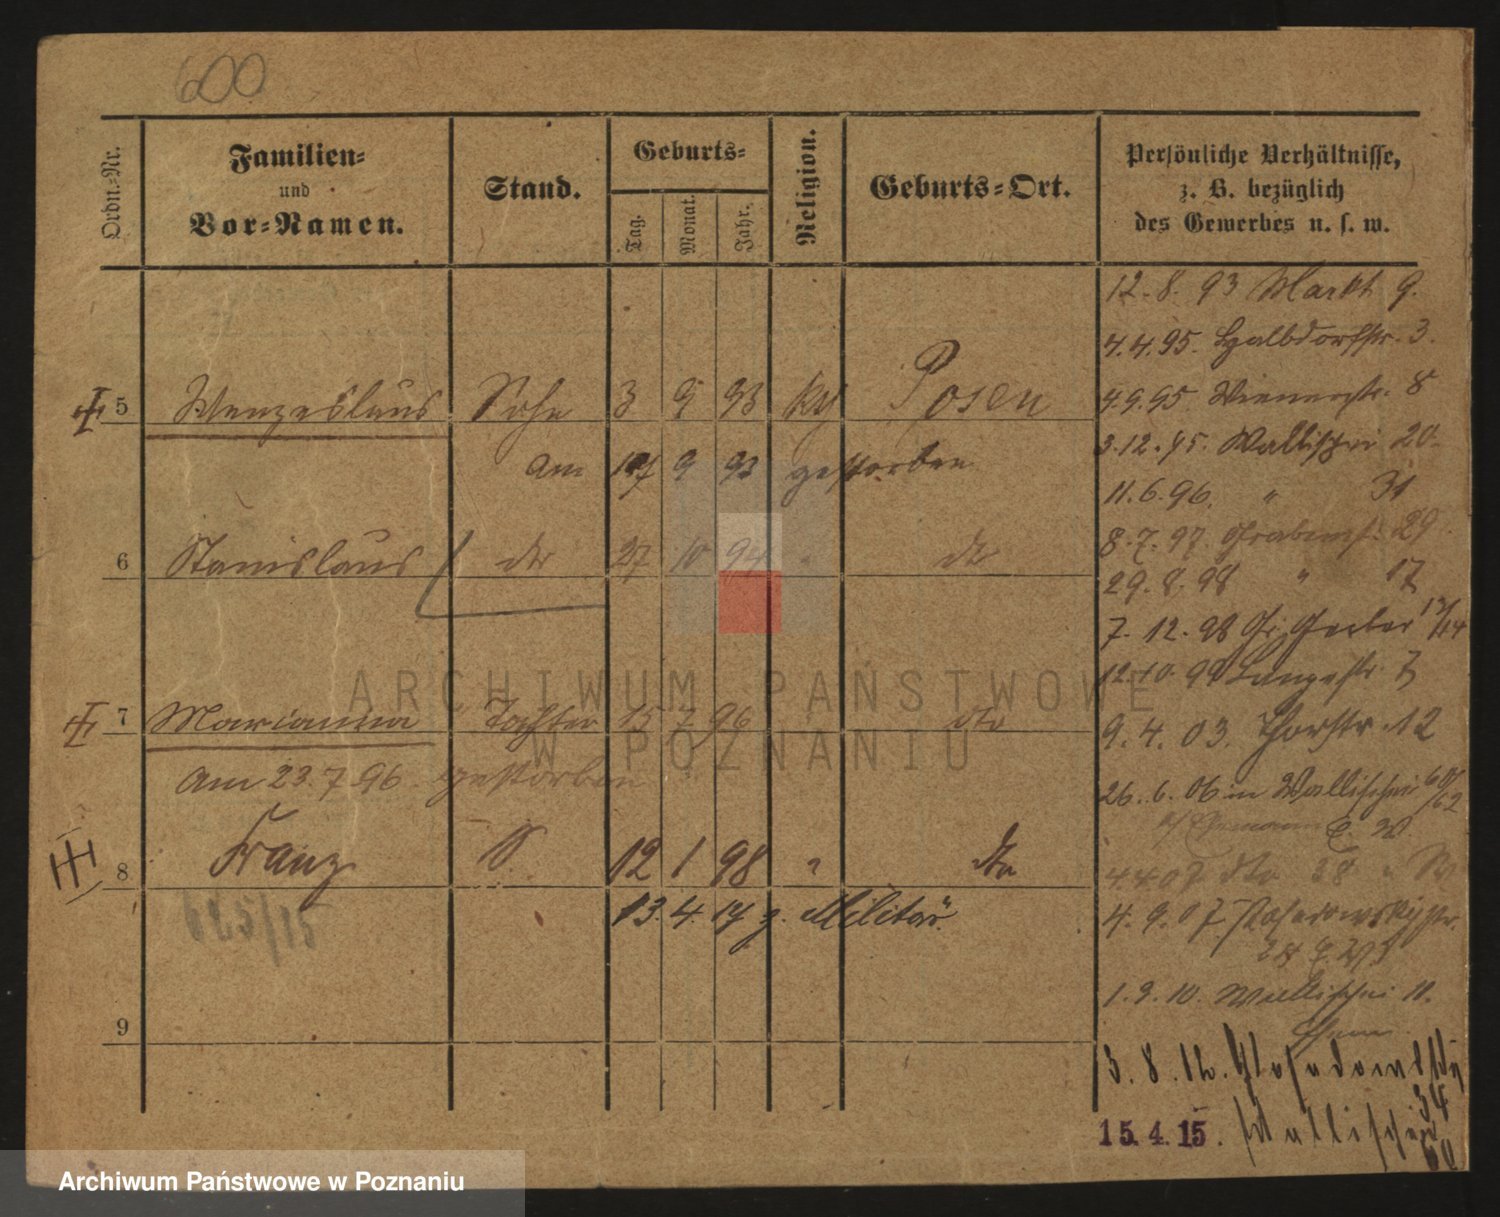 600
Ordn.-Nr.
Familien-
und
Vor-Namen.
Stand.
Geburts-
Tag.
Monat.
Jahr.
Religion.
Geburts-Ort.
Persönliche Verhältnisse,
z. B. bezüglich
des Gewerbes u. s. w.
12. 8. 93 Markt 9.
4. 4. 95. Halbdorfstr. 3.
5 Wenzeslaus Sohn 3 9 93 Posen
4. 9. 95. Wienerstr. 8
3. 12. 95. Wallischei 20.
am 9 93 gestorben
11. 6. 96. " 31
8. 7. 97. 29
6 Stanislaus dto 27 10 94 " dto
29. 8. 98 " 17
7. 12. 98 Gr. Gerber 13/14
7 Marianna Tochter 15 7 96 " dto
12. 10. 99 Langestr. 7
9. 4. 03. Thorstr. 12
am 23. 7. 96. gestorben
26. 6. 06 Wallischei
8 Franz S. 12 1 98 " dto
4. 4. 07 dto 38
625/15
13. 4. 17 z. Militär.
4. 9. 07.
1. 9. 10. Wallischei 11.
9
3. 8. 12. 34
15. 4. 15. Wallischei
ARCHIWUM PAŃSTWOWE
W POZNANIU
Archiwum Państwowe w Poznaniu